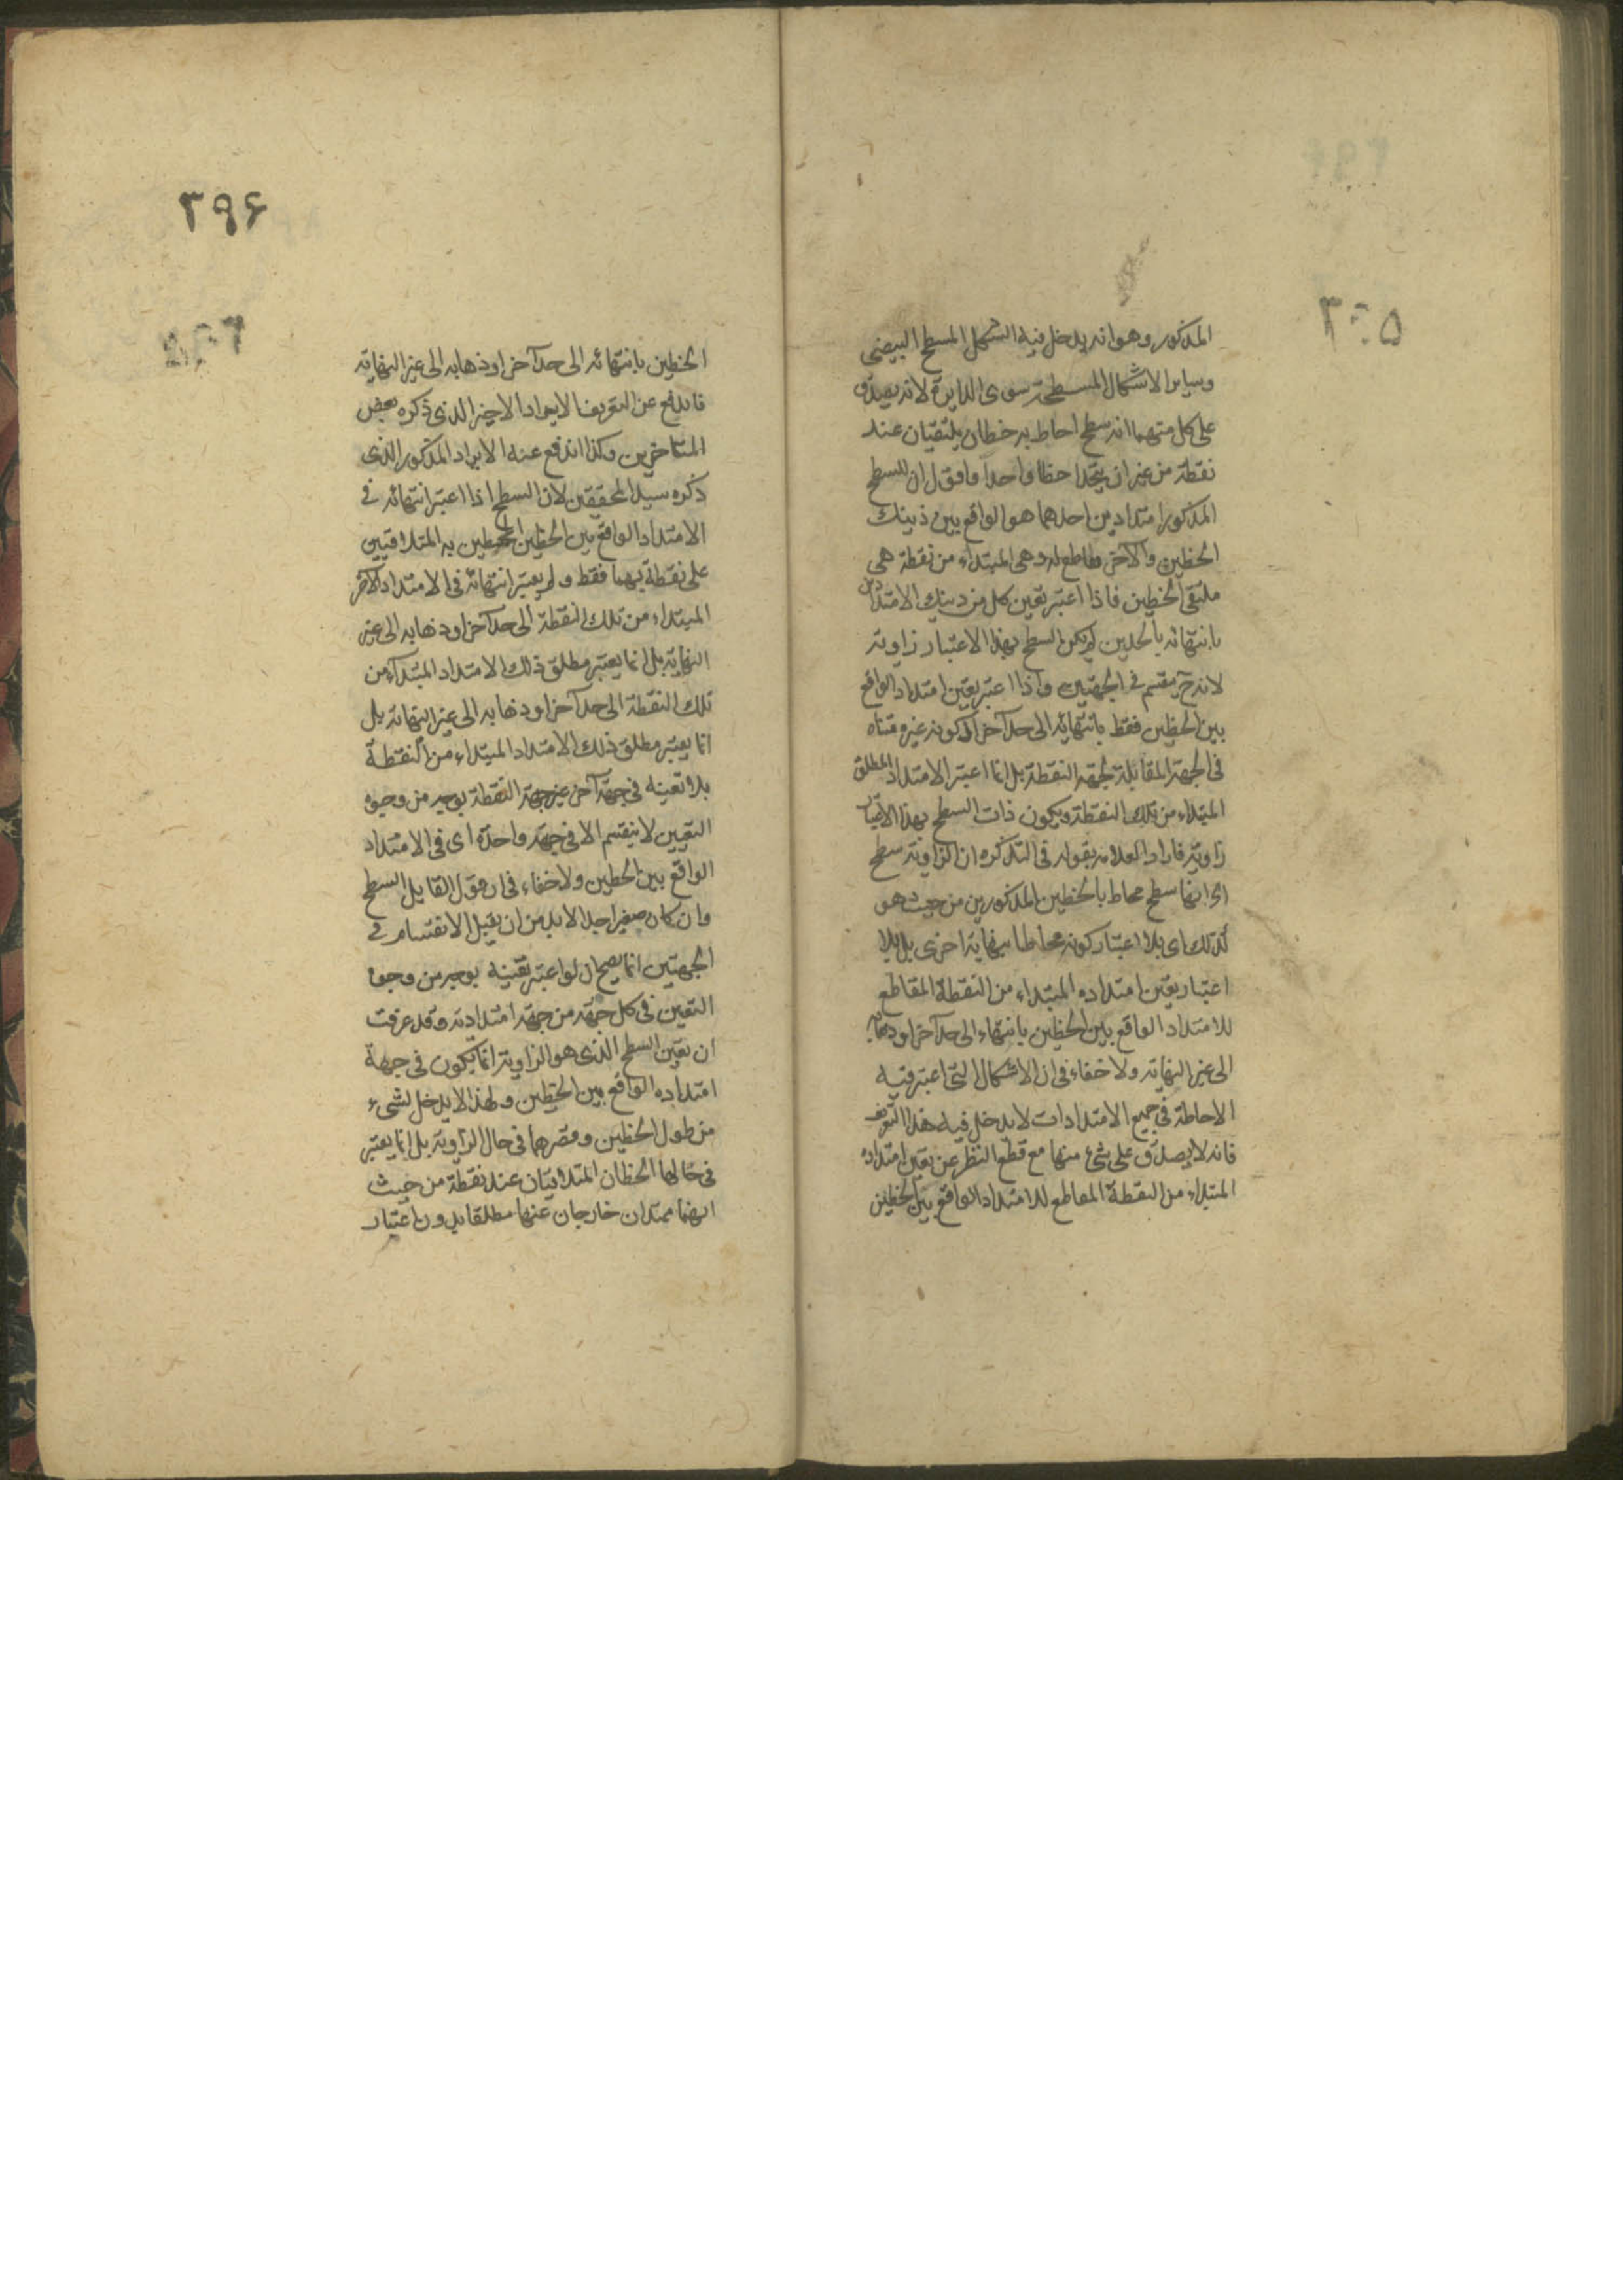 ۳۹۵
المذكور وهو انه يدخل فيه الشكل المسطح البيضى
وساير الاشكال المسطحة سوى الدايرة لانه يصدق
على كل منهما انه سطح احاط به خطان يلتقيان عند
نقطة من غير ان يتحدا خطا واحدا واقول ان للسطح
المذكور امتدادين احدهما هو الواقع بين ذينك
الخطين والآخر مقاطع له وهى المبتداء من نقطة هى
ملتقى الخطين فاذا اعتبر تعين كل من ذينك الامتدادين
بانتهائه بالحدين لم يكن السطح بهذا الاعتبار زاوية
لانه ح ينقسم فى الجهتين واذا اعتبر تعين امتداد الواقع
بين الخطين فقط بانتهائه الى حد آخر او كونه غير متناه
فى الجهة المقابلة لجهة النقطة بل انما اعتبر الامتداد المطلق
المبتداء من تلك النقطة ويكون ذات السطح بهذا الاعتبار
زاوية فاراد العلامه بقوله فى التذكره ان الزاوية سطح
اى انها سطح محاط بالخطين المذكورين من حيث هو
كذلك اى بلا اعتبار كونه محاطا بنهاية اخرى بل بلا
اعتبار تعين امتداده المبتداء من النقطة المقاطع
للامتداد الواقع بين الخطين بانتهاء الى حد آخر او ذهابه
الى غير النهاية ولا خفاء فى ان الاشكال التى اعتبر فيه
الاحاطة فى جميع الامتدادات لا يدخل فيه هذا التعريف
فانه لا يصدق على شئ منها مع قطع النظر عن تعين امتداده
المبتداء من النقطة المقاطع للامتداد الواقع بين الخطين
۳۹۶
الخطين بانتهائه الى حد آخر او ذهابه الى غير النهاية
فاندفع عن التعريف الايراد الاخير الذى ذكره بعض
المتاخرين وكذا اندفع عنه الايراد المذكور الذى
ذكره سيد المحققين لان السطح اذا اعتبر انتهائه فى
الامتداد الواقع بين الخطين المحيطين به المتلاقيين
على نقطة بهما فقط ولم يعتبر انتهائه فى الامتداد الآخر
المبتداء من تلك النقطة الى حد آخر او ذهابه الى غير
النهاية بل انما يعتبر مطلق ذلك الامتداد المبتداء من
تلك النقطة الى حد آخر او ذهابه الى غير النهاية بل
انما يعتبر مطلق ذلك الامتداد المبتداء من النقطة
بلا تعينه فى جهة آخر غير جهة النقطة بوجه من وجوه
التعيين لا ينقسم الا فى جهة واحدة اى فى الامتداد
الواقع بين الخطين ولا خفاء فى ان قول القايل السطح
وان كان صغيرا جدا لا بد من ان يقبل الانقسام فى
الجهتين انما يصح ان لو اعتبر تعينه بوجه من وجوه
التعين فى كل جهة من جهة امتدادته وقد عرفت
ان تعين السطح الذى هو الزاوية انما يكون فى جهة
امتداده الواقع بين الخطين ولهذا لا يدخل لشىء
من طول الخطين وقصرهما فى حال الزاوية بل انما يعتبر
فى حالها الخطان المتلاقيان عند نقطة من حيث
انهما ممتدان خارجان عنها مطلقا بدون اعتبار